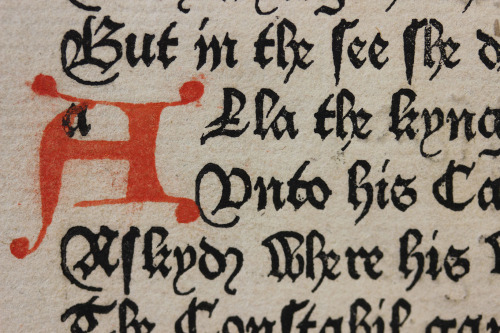 But in the ſee ſhe d
a ALla the kyng
Vnto his Ca
Aſkyd where his
The Conſtabil